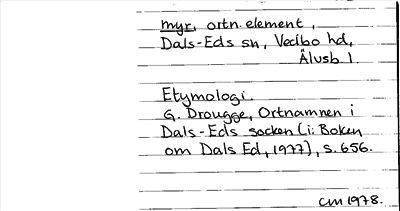 myr, ortn. element,
Dals-Eds sn, Vedbo hd,
Älvsb l.
Etymologi.
G. Drougge, Ortnamnen i
Dals-Eds socken (i: Boken
om Dals Ed, 1977), s. 656.
CM 1978.